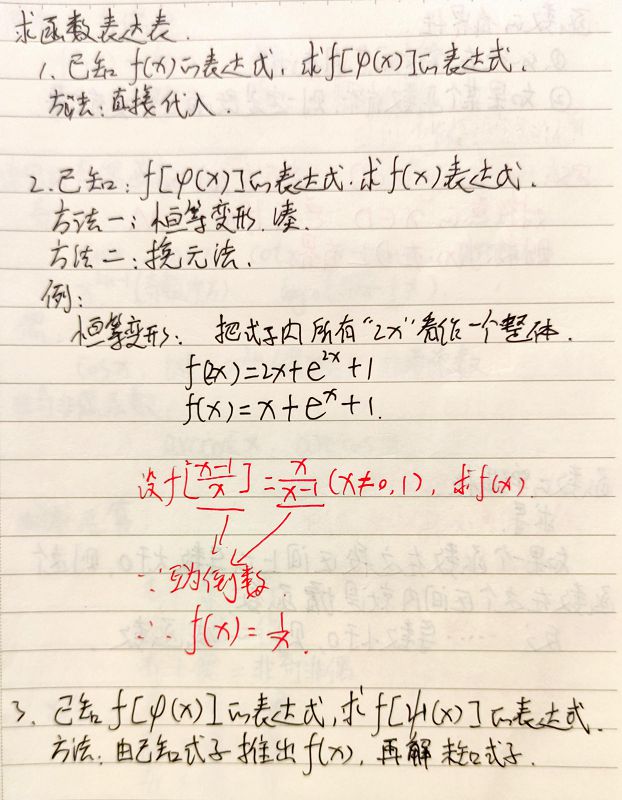 求函数表达表.
1. 已知 f(x)的表达式,求f[φ(x)]的表达式.
方法:直接代入.
2. 已知:f[φ(x)]的表达式.求f(x)表达式.
方法一:恒等变形.凑.
方法二:换元法.
例:
恒等变形: 把式子内所有“2x”看作一个整体.
f(2x)=2x+e^{2x}+1
f(x)=x+e^{x}+1.
设f[\frac{x-1}{x}]=\frac{x}{x-1}(x≠0,1), 求f(x).
∵互为倒数
∴ f(x)=\frac{1}{x}.
3. 已知f[φ(x)]的表达式,求f[ψ(x)]的表达式.
方法:由已知式子推出f(x),再解未知式子.